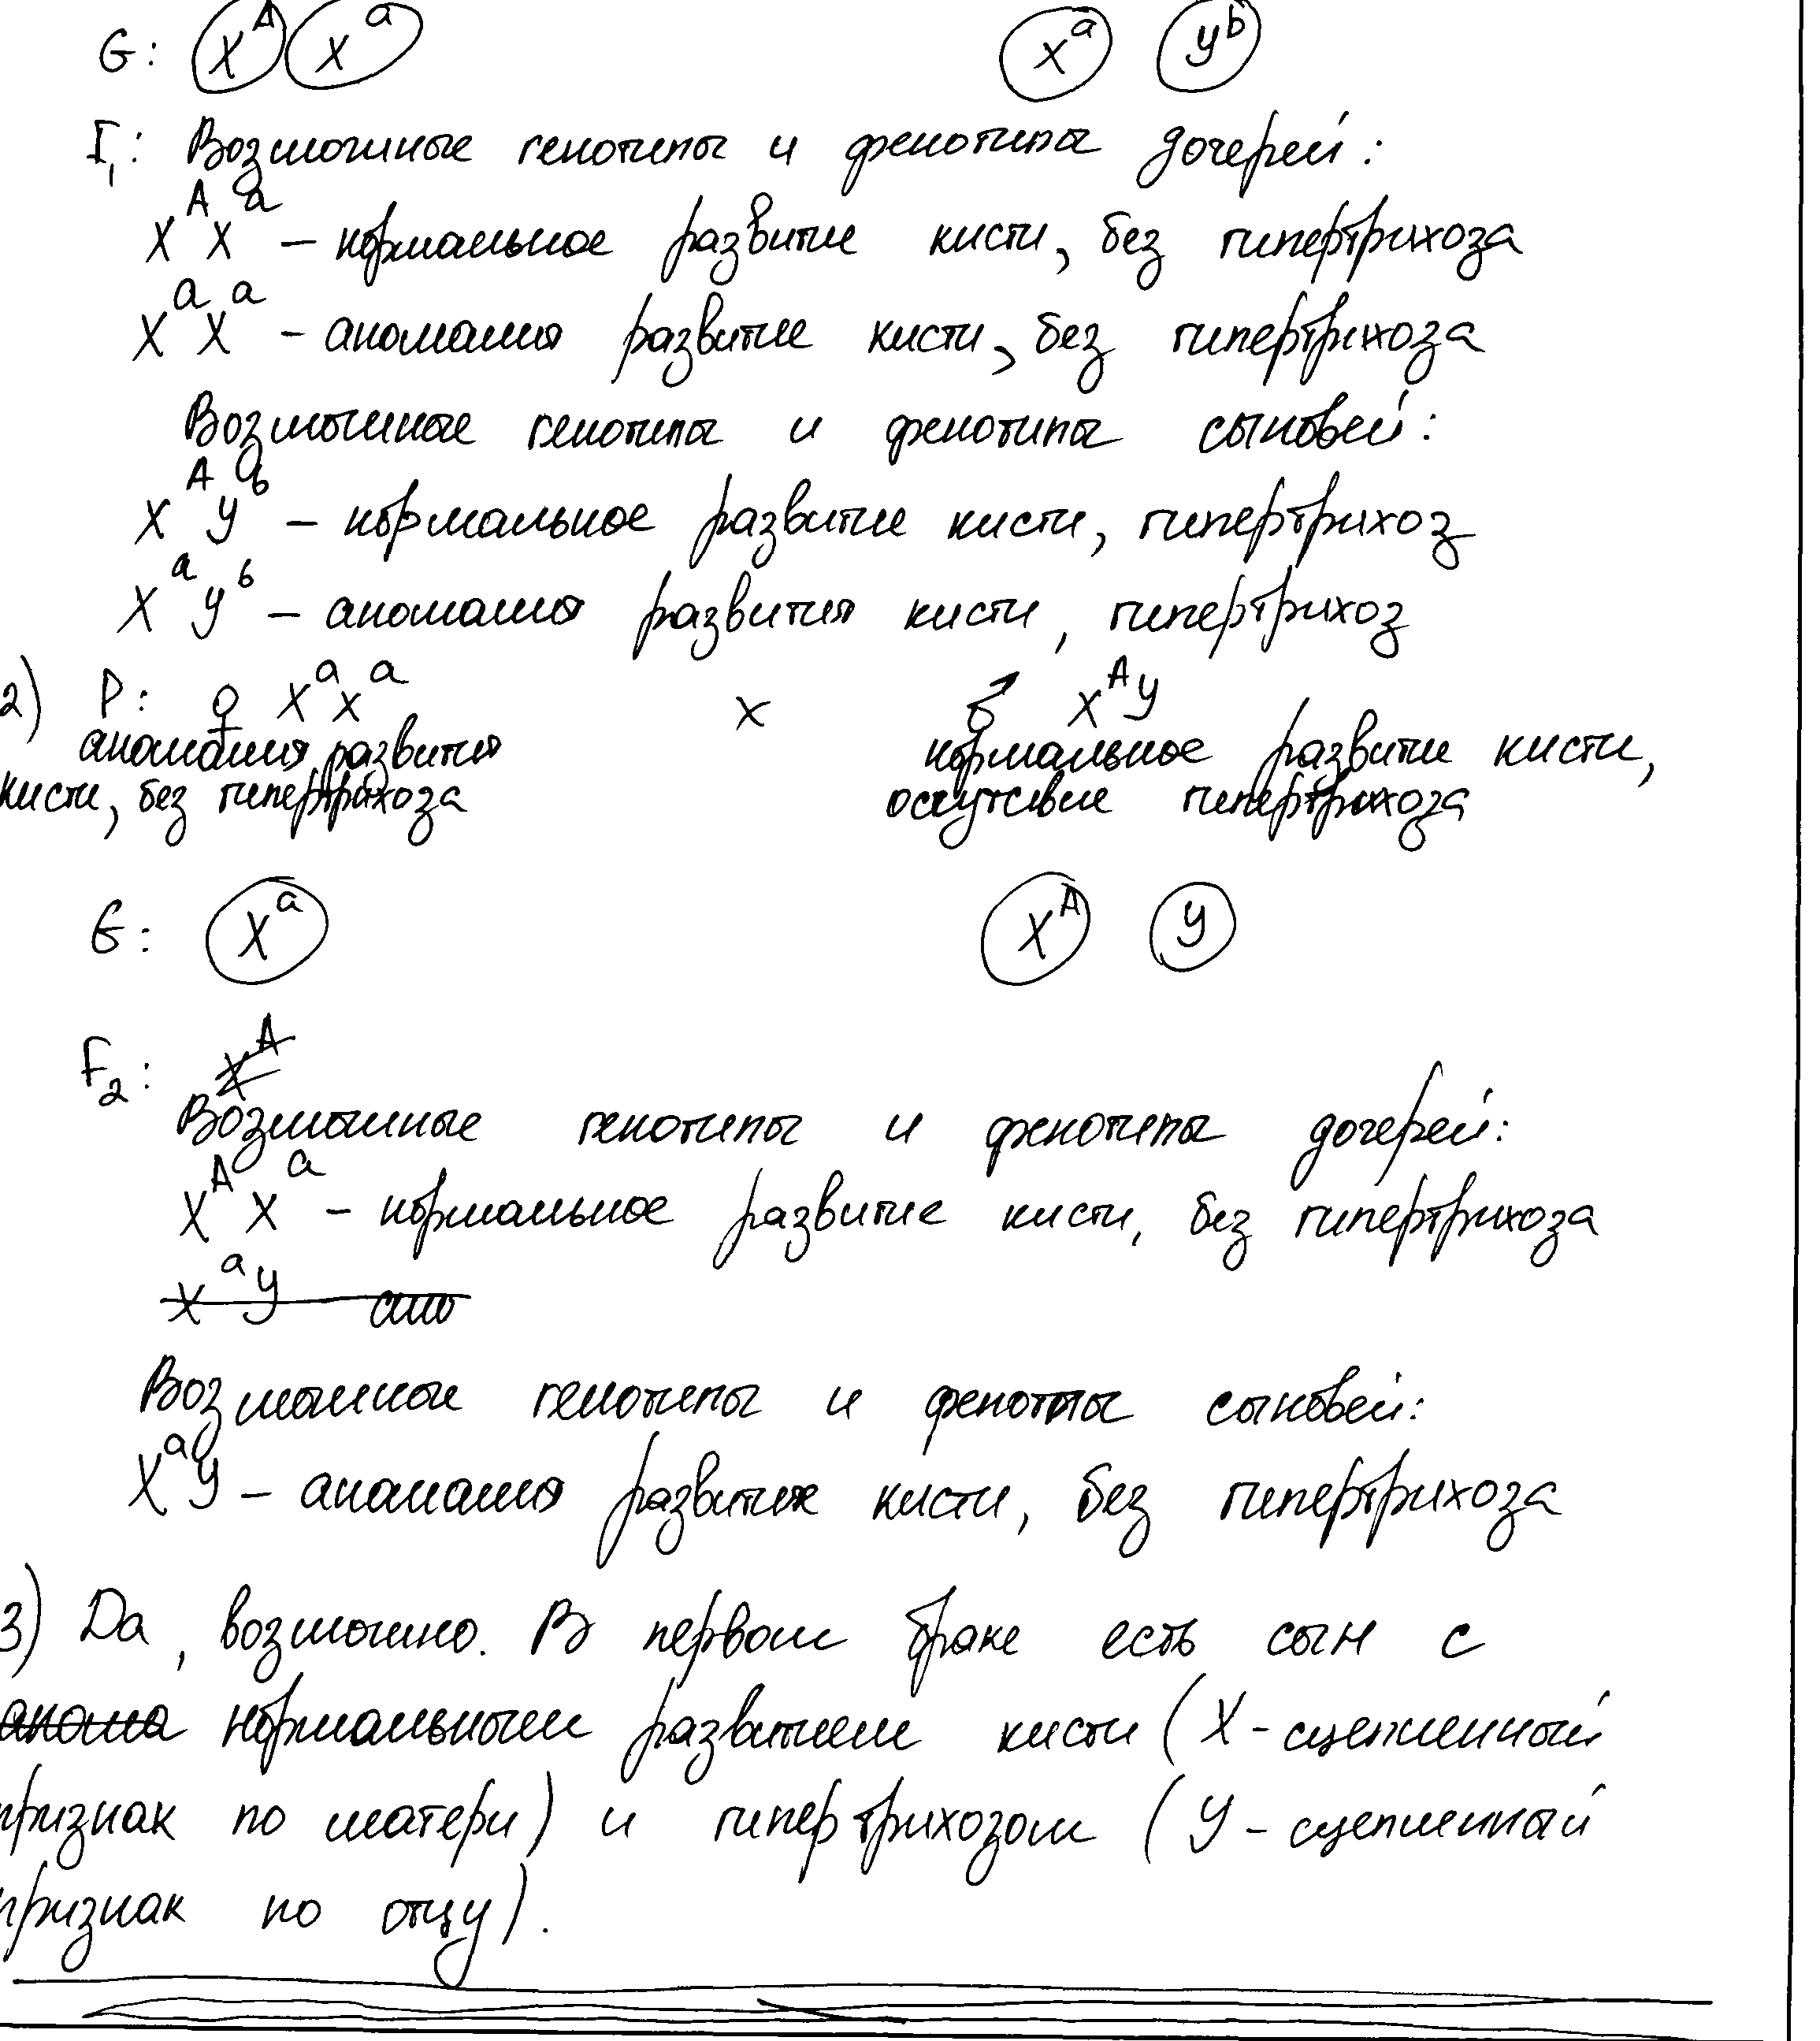 G: X^A X^a X^a Y^b
F₁: Возможные генотипы и фенотипы дочерей:
X^A X^a – нормальное развитие кисти, без гипертрихоза
X^a X^a – аномалия развитие кисти, без гипертрихоза
Возможные генотипы и фенотипы сыновей:
X^A Y^b – нормальное развитие кисти, гипертрихоз
X^a Y^b – аномалия развития кисти, гипертрихоз
2) P: ♀ X^a X^a x ♂ X^A Y
аномалия развития нормальное развитие кисти,
кисти, без гипертрихоза оскутсвие гипертрихоза
G: X^a X^A Y
F₂: X^A
Возможные генотипы и фенотипы дочерей:
X^A X^a – нормальное развитие кисти, без гипертрихоза
X^a Y
Возможные генотипы и фенотпы сыновей:
X^a Y – аномалия развития кисти, без гипертрихоза
3) Да, возможно. В первом браке есть сын с
анома нормальным развитием кисти (X-сцепленный
признак по матери) и гипертрихозом (Y-сцепленный
признак по отцу).